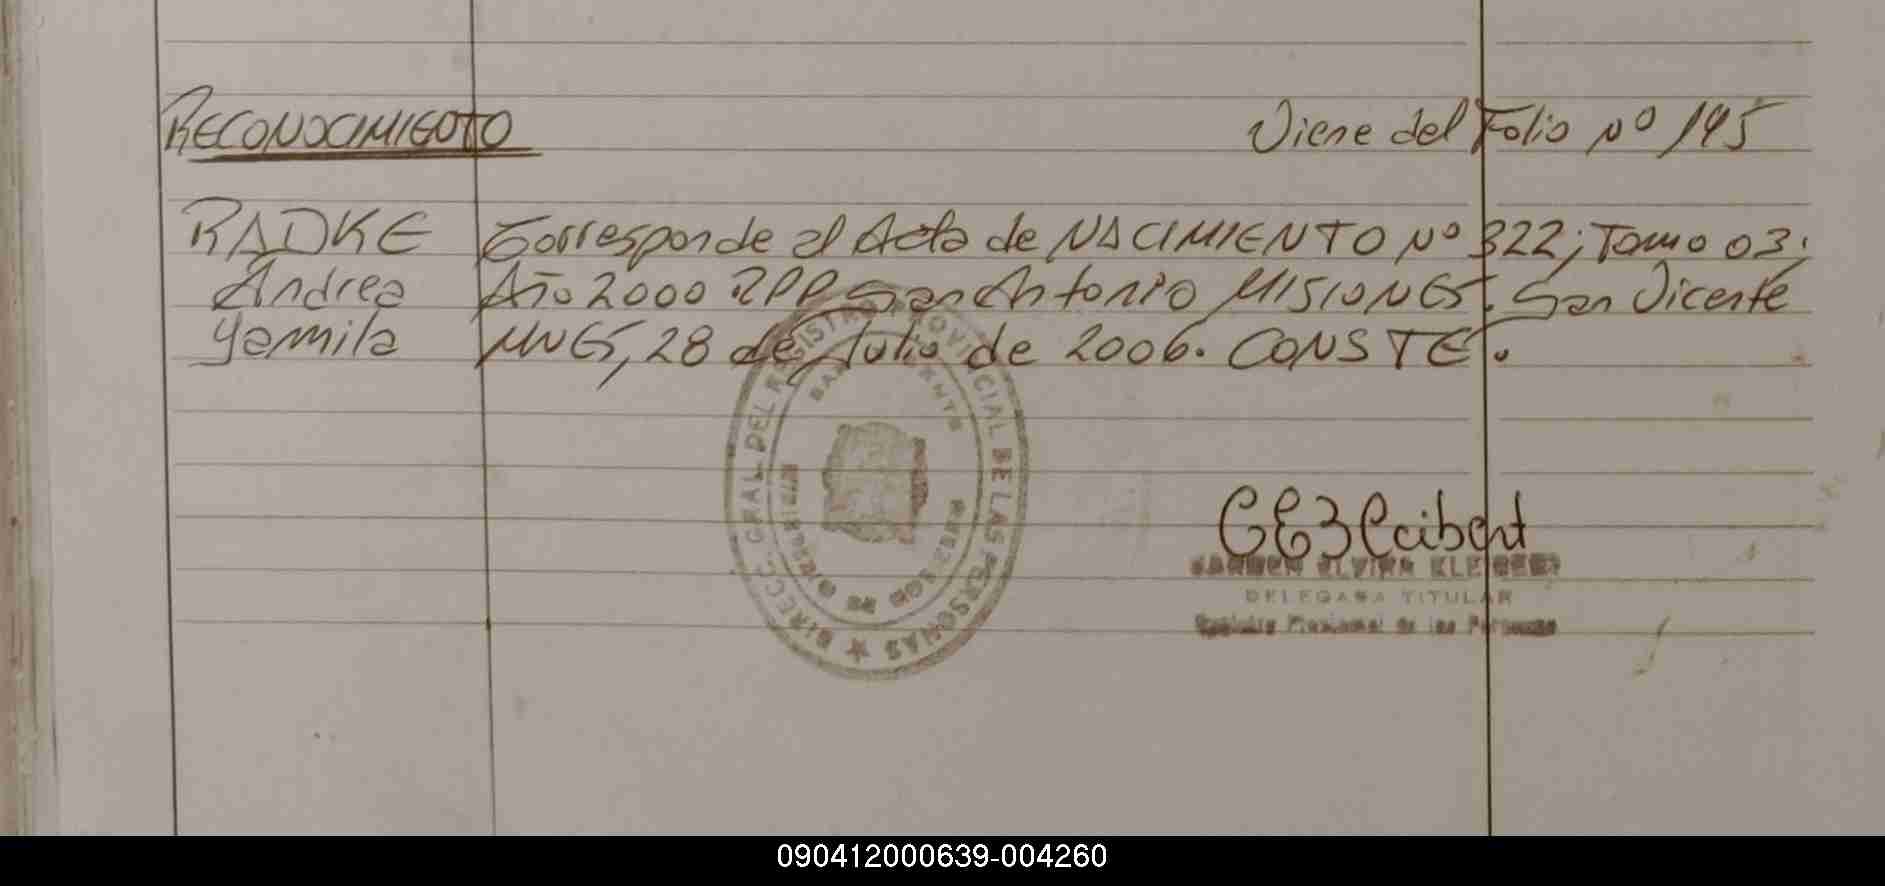 RECONOCIMIENTO Viene del Folio Nº 145
RADKE Corresponde al Acta de NACIMIENTO Nº 322; Tomo 03;
Andrea Año 2000 RPP San Antonio MISIONES. San Vicente
Yamila MNES, 28 de Julio de 2006. CONSTE.
DIRECC. GRAL. DEL REGISTRO PROVINCIAL DE LAS PERSONAS
SAN VICENTE
CARMEN ELVIRA KLEIBERT
DELEGADA TITULAR
Registro Provincial de las Personas
090412000639-004260